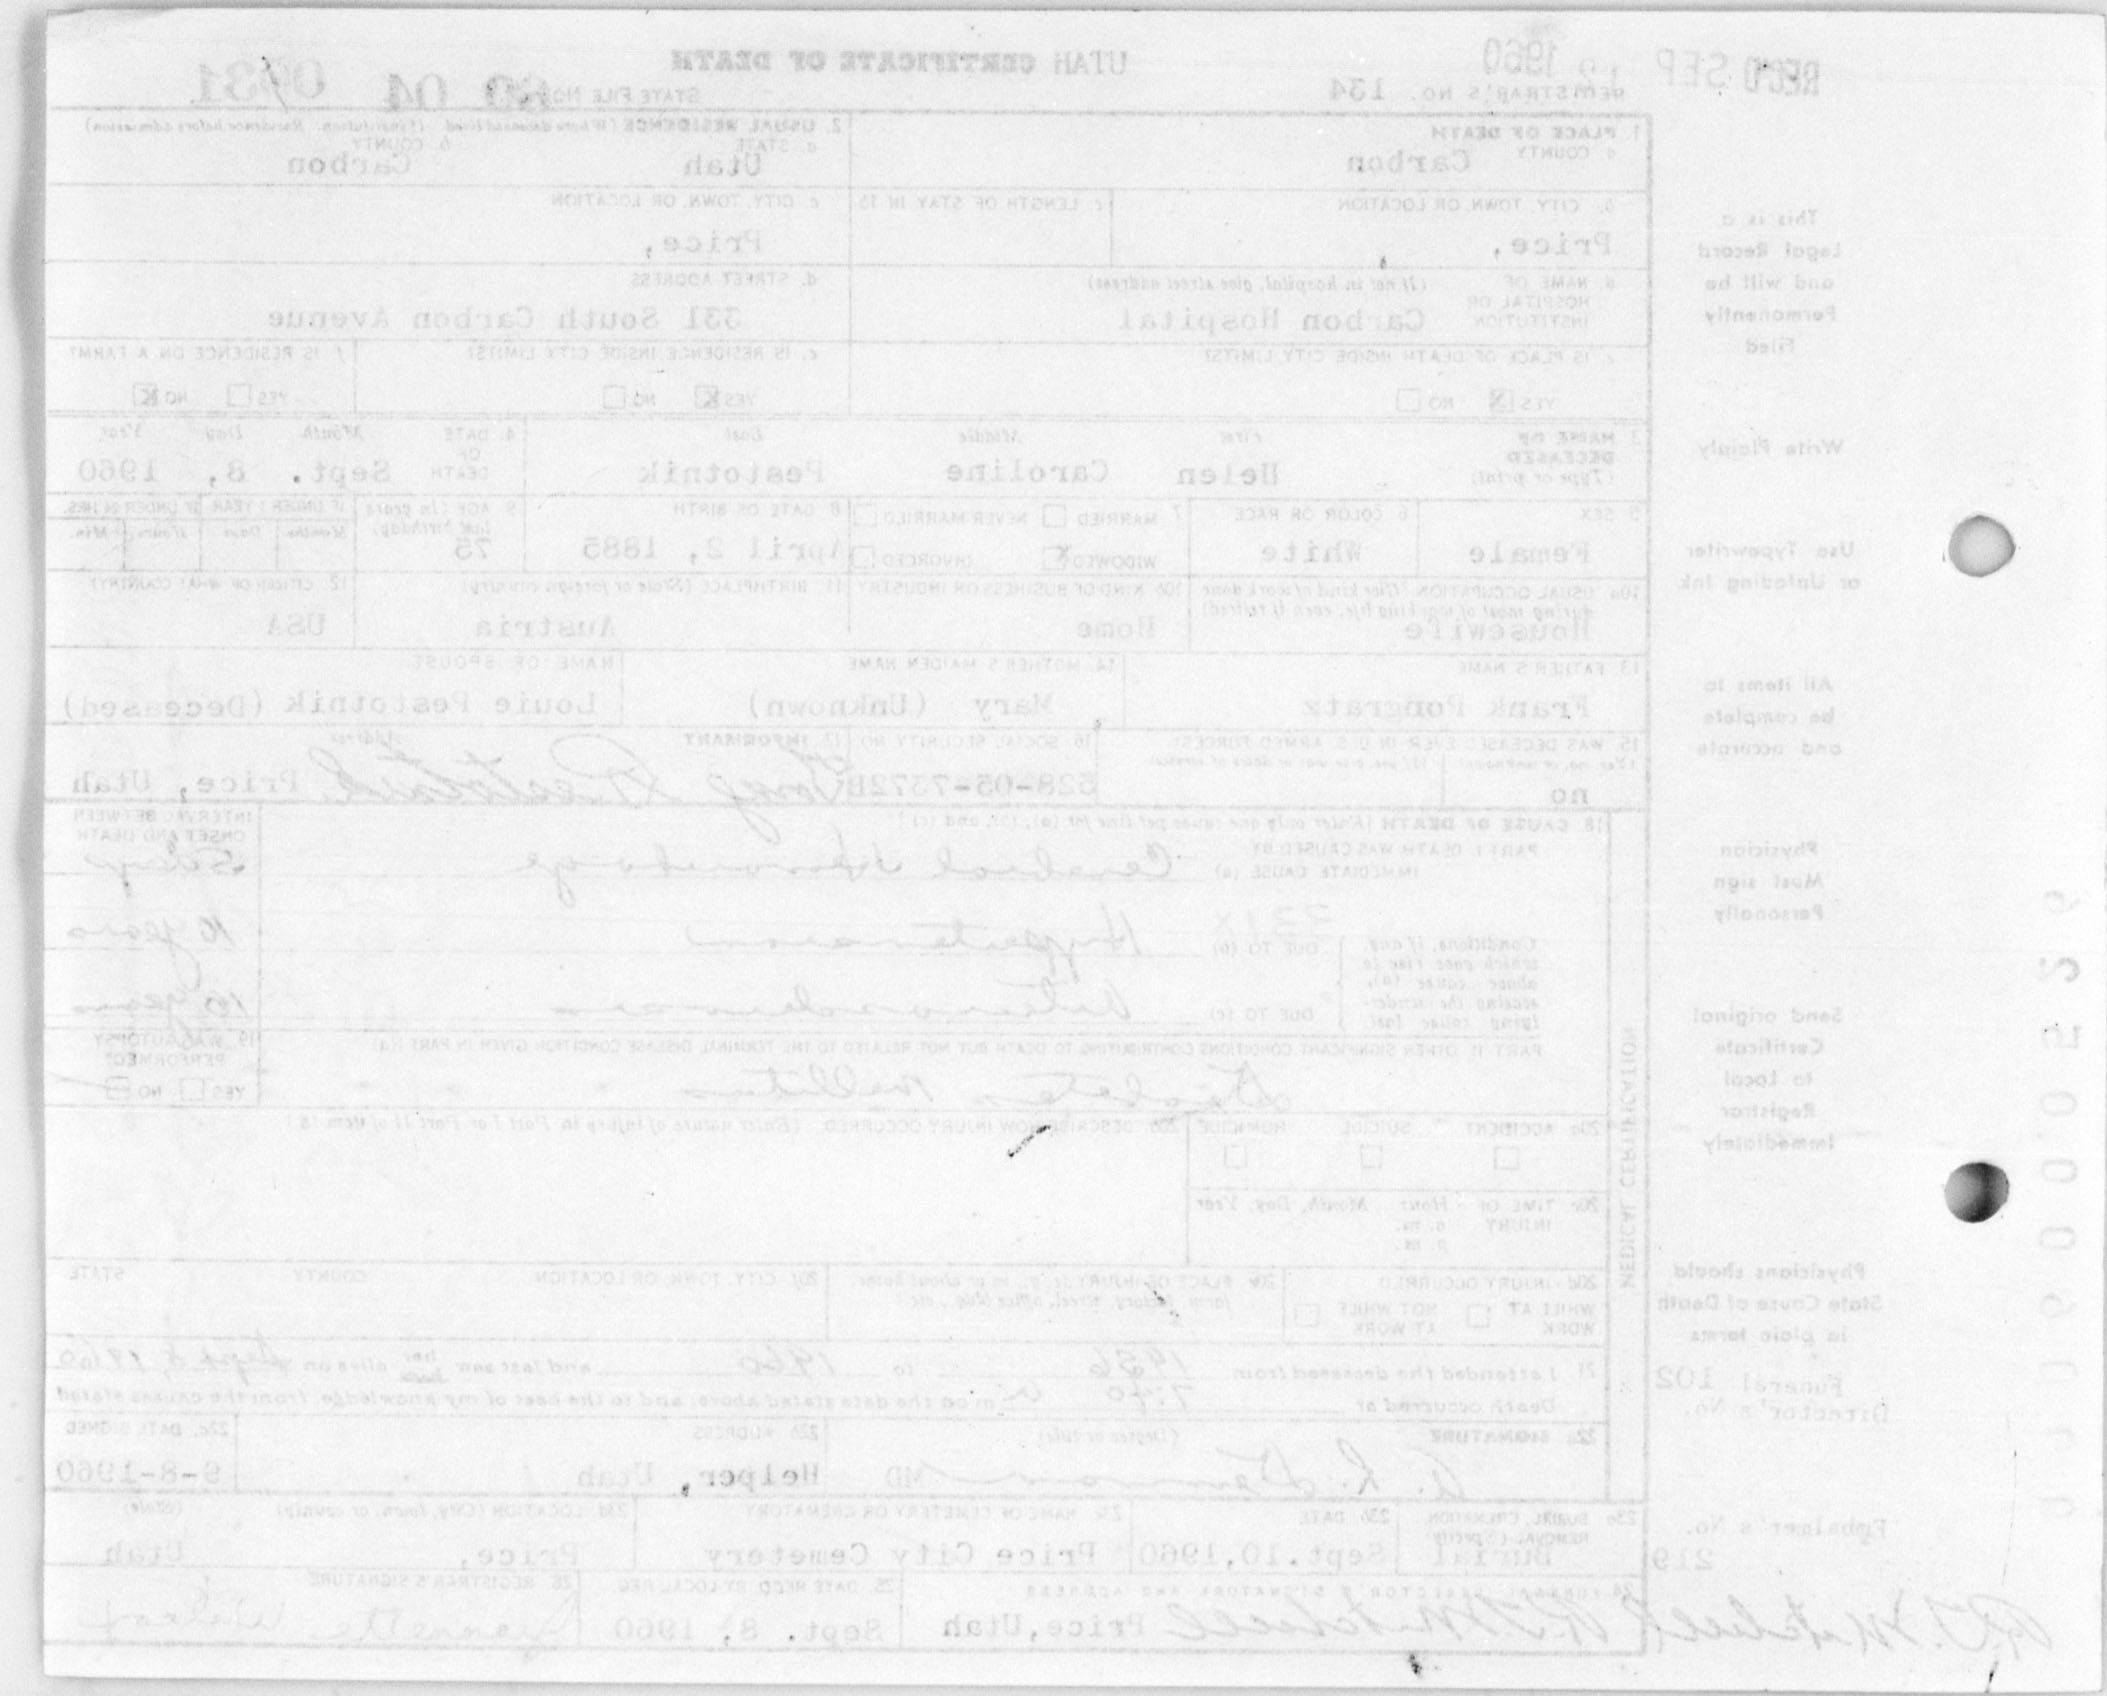 REC'D SEP 1960
UTAH CERTIFICATE OF DEATH
REGISTRAR'S NO. 134
STATE FILE NO. 60 04
1. PLACE OF DEATH
a. COUNTY Carbon
2. USUAL RESIDENCE (Where deceased lived. If institution: Residence before admission)
a. STATE Utah b. COUNTY Carbon
b. CITY, TOWN, OR LOCATION Price,
c. LENGTH OF STAY IN 1b
c. CITY, TOWN, OR LOCATION Price,
d. NAME OF HOSPITAL OR INSTITUTION (If not in hospital, give street address) Carbon Hospital
d. STREET ADDRESS 331 South Carbon Avenue
e. IS PLACE OF DEATH INSIDE CITY LIMITS? YES X NO
e. IS RESIDENCE INSIDE CITY LIMITS? YES X NO
f. IS RESIDENCE ON A FARM? YES NO X
3. NAME OF DECEASED (Type or print) First Middle Last
Helen Caroline Pestotnik
4. DATE OF DEATH Month Day Year
Sept. 8, 1960
5. SEX Female
6. COLOR OR RACE White
7. MARRIED NEVER MARRIED
WIDOWED X DIVORCED
8. DATE OF BIRTH April 2, 1885
9. AGE (In years last birthday) 75
IF UNDER 1 YEAR Months Days
IF UNDER 24 HRS. Hours Min.
10a. USUAL OCCUPATION (Give kind of work done during most of working life, even if retired) Housewife
10b. KIND OF BUSINESS OR INDUSTRY Home
11. BIRTHPLACE (State or foreign country) Austria
12. CITIZEN OF WHAT COUNTRY? USA
13. FATHER'S NAME Frank Pongratz
14. MOTHER'S MAIDEN NAME Mary (Unknown)
NAME OF SPOUSE Louie Pestotnik (Deceased)
15. WAS DECEASED EVER IN U.S. ARMED FORCES?
(Yes, no, or unknown) (If yes, give war or dates of service)
no
16. SOCIAL SECURITY NO. 528-05-7372B
17. INFORMANT Address
Tony Pestotnik Price, Utah
18. CAUSE OF DEATH [Enter only one cause per line for (a), (b), and (c).]
INTERVAL BETWEEN ONSET AND DEATH
PART I. DEATH WAS CAUSED BY:
IMMEDIATE CAUSE (a) Cerebral Hemorrhage 5 days
331X
Conditions, if any, which gave rise to above cause (a), stating the underlying cause last.
DUE TO (b) Hypertension 10 years
DUE TO (c) Arteriosclerosis 10 years
PART II. OTHER SIGNIFICANT CONDITIONS CONTRIBUTING TO DEATH BUT NOT RELATED TO THE TERMINAL DISEASE CONDITION GIVEN IN PART I(a)
Diabetes Mellitus
19. WAS AUTOPSY PERFORMED? YES NO
20a. ACCIDENT SUICIDE HOMICIDE
20b. DESCRIBE HOW INJURY OCCURRED. (Enter nature of injury in Part I or Part II of item 18.)
20c. TIME OF INJURY Hour Month, Day, Year
a. m.
p. m.
20d. INJURY OCCURRED
WHILE AT WORK NOT WHILE AT WORK
20e. PLACE OF INJURY (e. g., in or about home, farm, factory, street, office bldg., etc.)
20f. CITY, TOWN, OR LOCATION COUNTY STATE
21. I attended the deceased from 1956 to 1960 and last saw her him alive on Sept 8, 1960
Death occurred at 7:40 a m on the date stated above, and to the best of my knowledge, from the causes stated
22a. SIGNATURE (Degree or title) MD
22b. ADDRESS Helper, Utah
22c. DATE SIGNED 9-8-1960
23a. BURIAL, CREMATION, REMOVAL (Specify) Burial
23b. DATE Sept.10,1960
23c. NAME OF CEMETERY OR CREMATORY Price City Cemetery
23d. LOCATION (City, town, or county) (State)
Price, Utah
24. FUNERAL DIRECTOR'S SIGNATURE AND ADDRESS
Mitchell Price,Utah
25. DATE RECD. BY LOCAL REG. Sept. 8, 1960
26. REGISTRAR'S SIGNATURE
Jeanette
MEDICAL CERTIFICATION
This is a
Legal Record
and will be
Permanently
Filed
Write Plainly
Use Typewriter
or Unfading Ink
All items to
be complete
and accurate
Physician
Must sign
Personally
Send original
Certificate
to Local
Registrar
Immediately
Physicians should
State Cause of Death
in plain terms
Funeral 102
Director's No.
Embalmer's No.
219
Mitchell